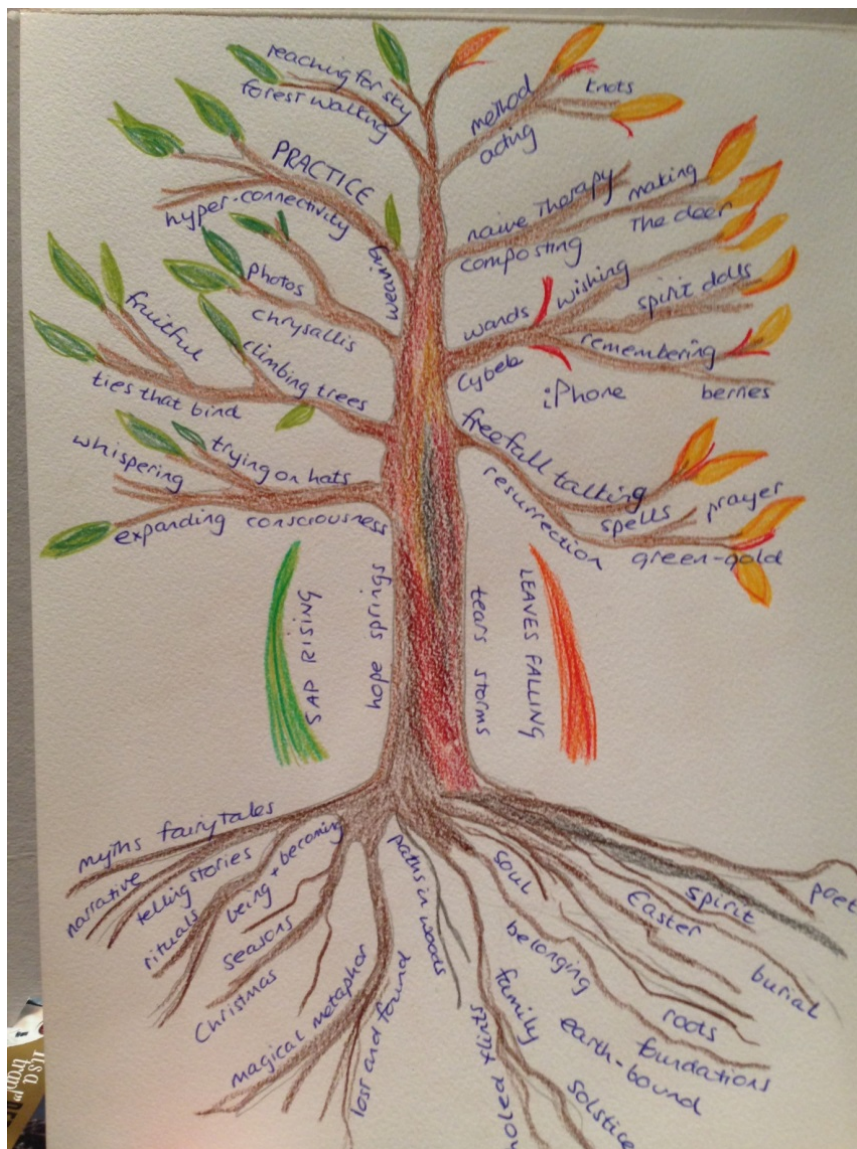 reaching for sky
forest walking
PRACTICE
hyper-connectivity
weaving
photos
chrysallis
fruitful
climbing trees
ties that bind
whispering
trying on hats
expanding consciousness
method
acting
knots
naive Therapy
making
The deer
composting
wishing
wands
spirit dolls
remembering
Cybele
iPhone
berries
freefall talking
resurrection
spells
prayer
green-gold
SAP RISING
hope springs
tears storms
LEAVES FALLING
myths fairytales
narrative
telling stories
rituals
being + becoming
seasons
Christmas
magical metaphor
lost and found
paths in woods
soul
belonging
family
solstice
earth-bound
foundations
roots
Easter
spirit
burial
poet